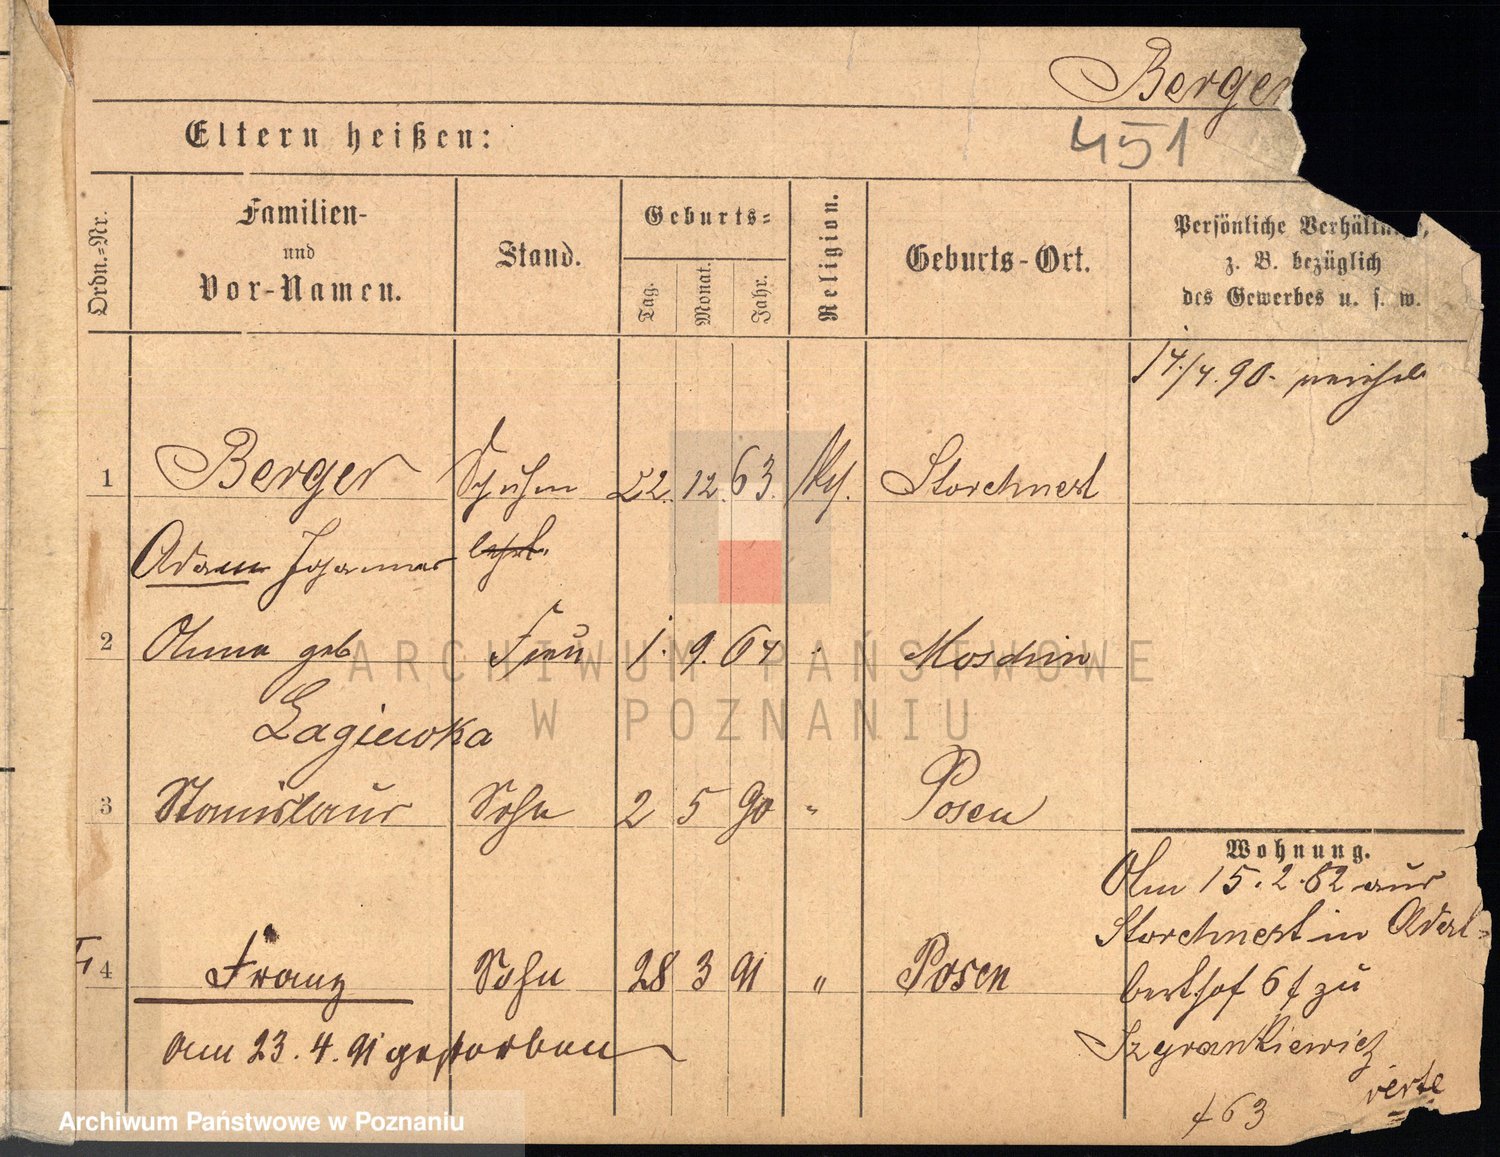 Berger
451
Eltern heißen:
Ordn.=Nr.
Familien-
und
Vor-Namen.
Stand.
Geburts=
Tag.
Monat.
Jahr.
Religion.
Geburts-Ort.
Persönliche Verhältnisse,
z. B. bezüglich
des Gewerbes u. s. w.
14./4. 90.
1 Berger Schuhm 22. 12. 63. Storchnest
Adam Johannes
2 Anna geb Frau 1. 9. 64 " Moschin
Lagiewka
3 Stanislaus Sohn 2 5 90 " Posen
Wohnung.
Am 15. 2. 82 aus
Storchnest in Adal-
berthof 6 f zu
4 Franz Sohn 28 3 91 " Posen
am 23. 4. 91 gestorben
Szyrankiewicz
verte
f 63
ARCHIWUM PAŃSTWOWE
W POZNANIU
Archiwum Państwowe w Poznaniu